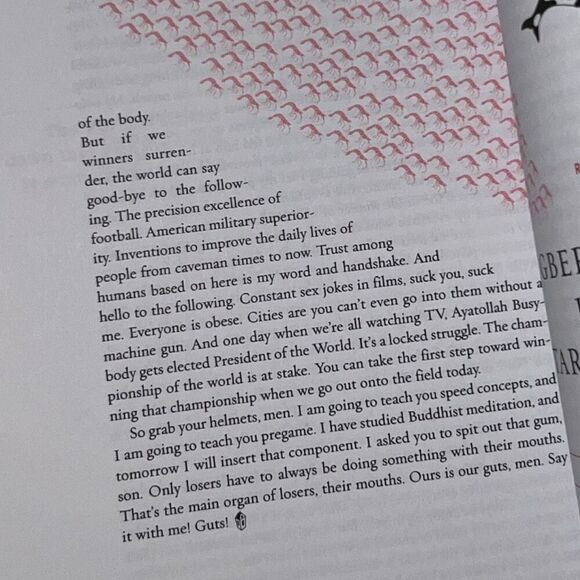 of the body.
But if we
winners surren-
der, the world can say
good-bye to the follow-
ing. The precision excellence of
football. American military superior-
ity. Inventions to improve the daily lives of
people from caveman times to now. Trust among
humans based on here is my word and handshake. And
hello to the following. Constant sex jokes in films, suck you, suck
me. Everyone is obese. Cities are you can't even go into them without a
machine gun. And one day when we're all watching TV, Ayatollah Busy-
body gets elected President of the World. It's a locked struggle. The cham-
pionship of the world is at stake. You can take the first step toward win-
ning that championship when we go out onto the field today.
So grab your helmets, men. I am going to teach you speed concepts, and
I am going to teach you pregame. I have studied Buddhist meditation, and
tomorrow I will insert that component. I asked you to spit out that gum,
son. Only losers have to always be doing something with their mouths.
That's the main organ of losers, their mouths. Ours is our guts, men. Say
it with me! Guts!